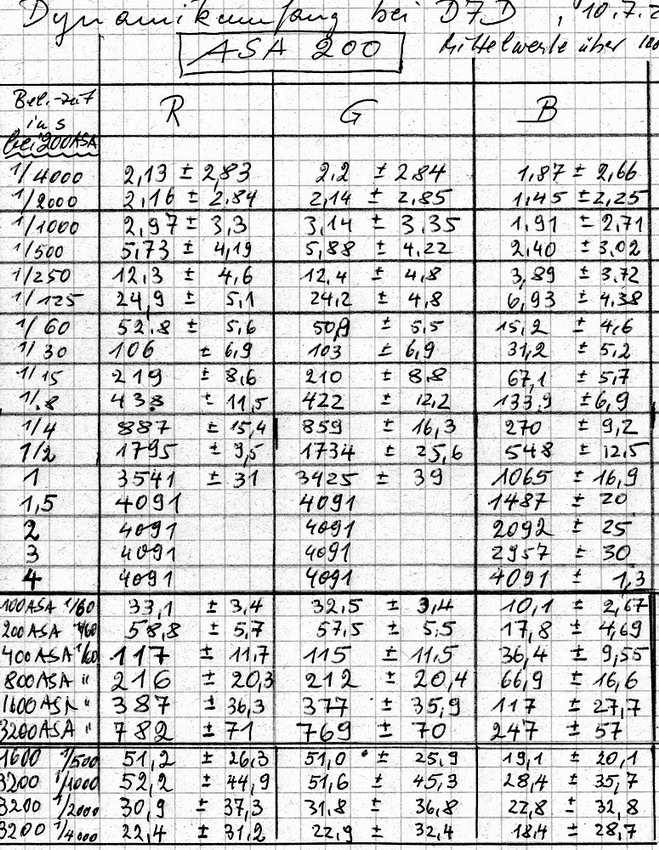 Dynamikumfang bei D7D, 10.7.2
ASA 200 Mittelwerte über 100
Bel.-zeit in s bei 200 ASA R G B
1/4000 2,13 ± 2,83 2,2 ± 2,84 1,87 ± 2,66
1/2000 2,16 ± 2,84 2,14 ± 2,85 1,45 ± 2,25
1/1000 2,97 ± 3,3 3,14 ± 3,35 1,91 ± 2,71
1/500 5,73 ± 4,19 5,88 ± 4,22 2,40 ± 3,02
1/250 12,3 ± 4,6 12,4 ± 4,8 3,89 ± 3,72
1/125 24,9 ± 5,1 24,2 ± 4,8 6,93 ± 4,38
1/60 52,8 ± 5,6 50,9 ± 5,5 15,2 ± 4,6
1/30 106 ± 6,9 103 ± 6,9 31,2 ± 5,2
1/15 219 ± 8,6 210 ± 8,8 67,1 ± 5,7
1/8 438 ± 11,5 422 ± 12,2 133,9 ± 6,9
1/4 887 ± 15,4 859 ± 16,3 270 ± 9,2
1/2 1795 ± 9,5 1734 ± 25,6 548 ± 12,5
1 3541 ± 31 3425 ± 39 1065 ± 16,9
1,5 4091 4091 1487 ± 20
2 4091 4091 2092 ± 25
3 4091 4091 2957 ± 30
4 4091 4091 4091 ± 1,3
100ASA 1/60 33,1 ± 3,4 32,5 ± 3,4 10,1 ± 2,67
200ASA 1/60 58,8 ± 5,7 57,5 ± 5,5 17,8 ± 4,69
400ASA 1/60 117 ± 11,7 115 ± 11,5 36,4 ± 9,55
800ASA " 216 ± 20,3 212 ± 20,4 66,9 ± 16,6
1600ASA " 387 ± 36,3 377 ± 35,9 117 ± 27,7
3200ASA " 782 ± 71 769 ± 70 247 ± 57
1600 1/500 51,2 ± 26,3 51,0 ± 25,9 19,1 ± 20,1
3200 1/1000 52,2 ± 44,9 51,6 ± 45,3 28,4 ± 35,7
3200 1/2000 30,9 ± 37,3 31,8 ± 36,8 22,8 ± 32,8
3200 1/4000 22,4 ± 31,2 22,9 ± 32,4 18,4 ± 28,7